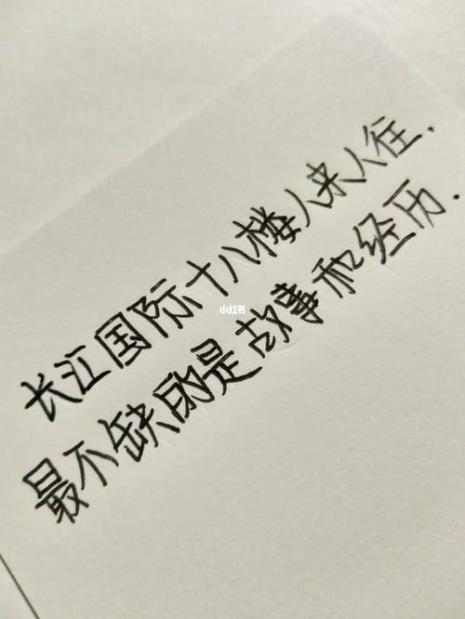 长江国际十八楼人来人往.
最不缺的是故事和经历.
小红书